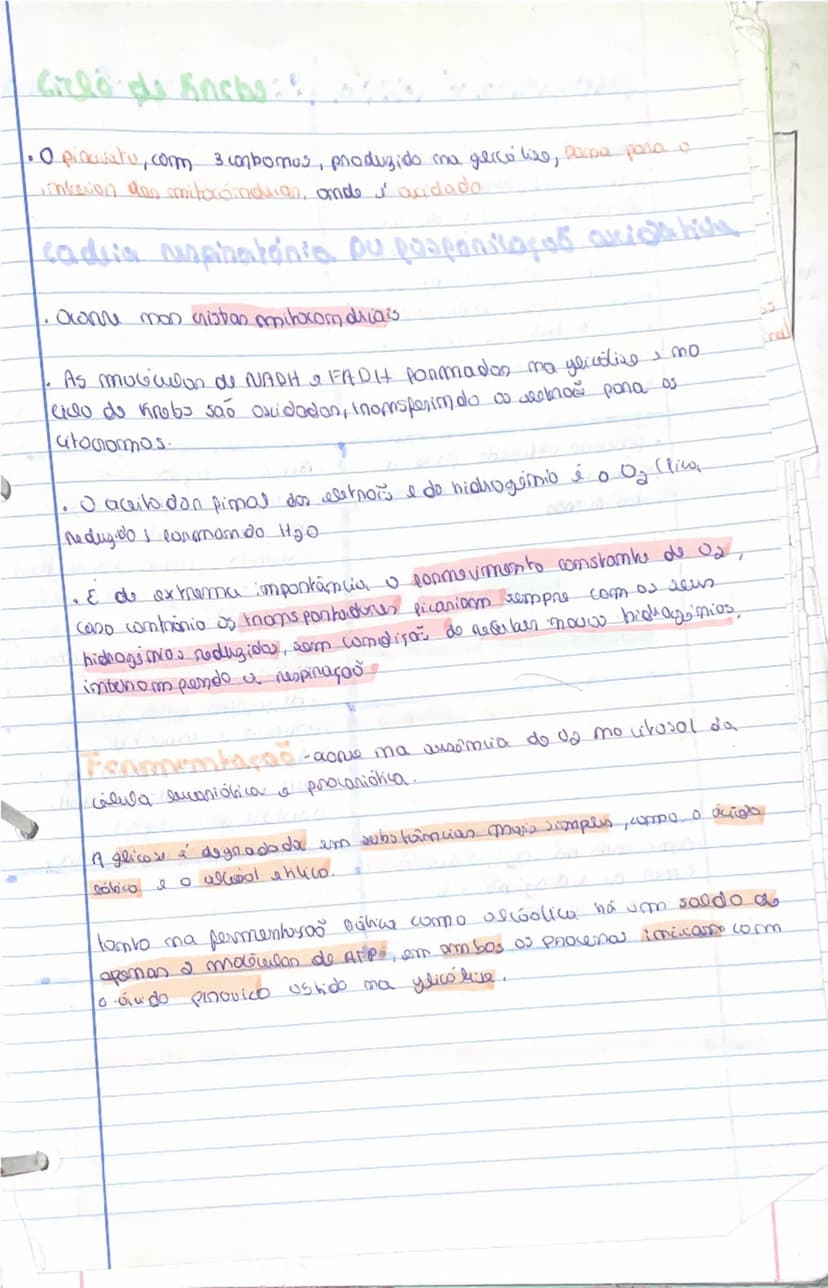 Ciclo de Krebs:
. O piruvato, com 3 carbonos, produzido na glicólise, passa para o
interior das mitocôndrias, onde é oxidado
cadeia respiratória ou fosforilação oxidativa
. Ocorre nas cristas mitocondriais
. As moléculas de NADH e FADH formadas na glicólise e no
ciclo de Krebs são oxidadas, transferindo os eletrões para os
citocromos.
. O aceitador final dos eletrões e do hidrogénio é o O2 (fica
reduzido, formando H2O
. É de extrema importância o fornecimento constante de O2,
caso contrário os transportadores ficariam sempre com os seus
hidrogénios reduzidos, sem condição de receber novos hidrogénios,
interrompendo a respiração
Fermentação - ocorre na ausência do O2 no citosol da
célula eucariótica e procariótica.
A glicose é degradada em substâncias mais simples, como o ácido
lático e o álcool etílico.
tanto na fermentação lática como alcóolica há um saldo de
apenas 2 moléculas de ATP, em ambos os processos iniciam com
o ácido pirúvico obtido na glicólise.